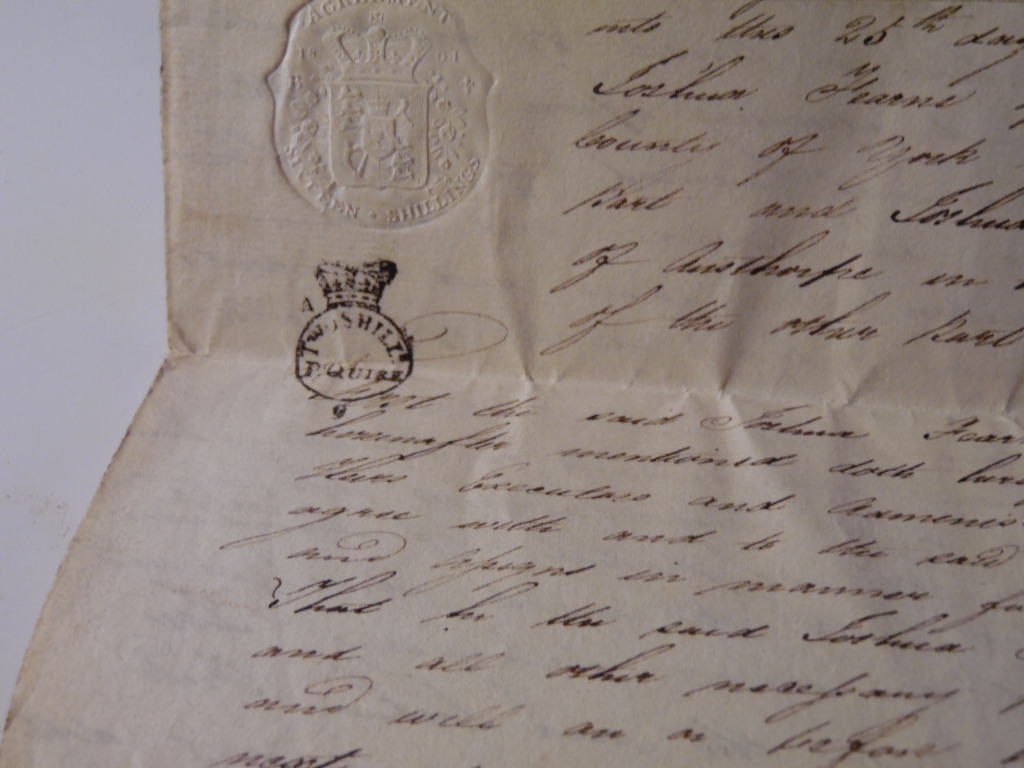 AGREEMENT
SHILLINGS
A
TWO SHILL
Pr QUIRE
into this 25th day
Joshua Fearne
County of York
Part and Joshua
of Austhorpe in
of the other Part
the said Joshua Fear
hereinafter mentioned doth here
and
agree with and to the said
and Assigns in manner fo
That he the said Joshua
and all other necessary
and will on or before
next